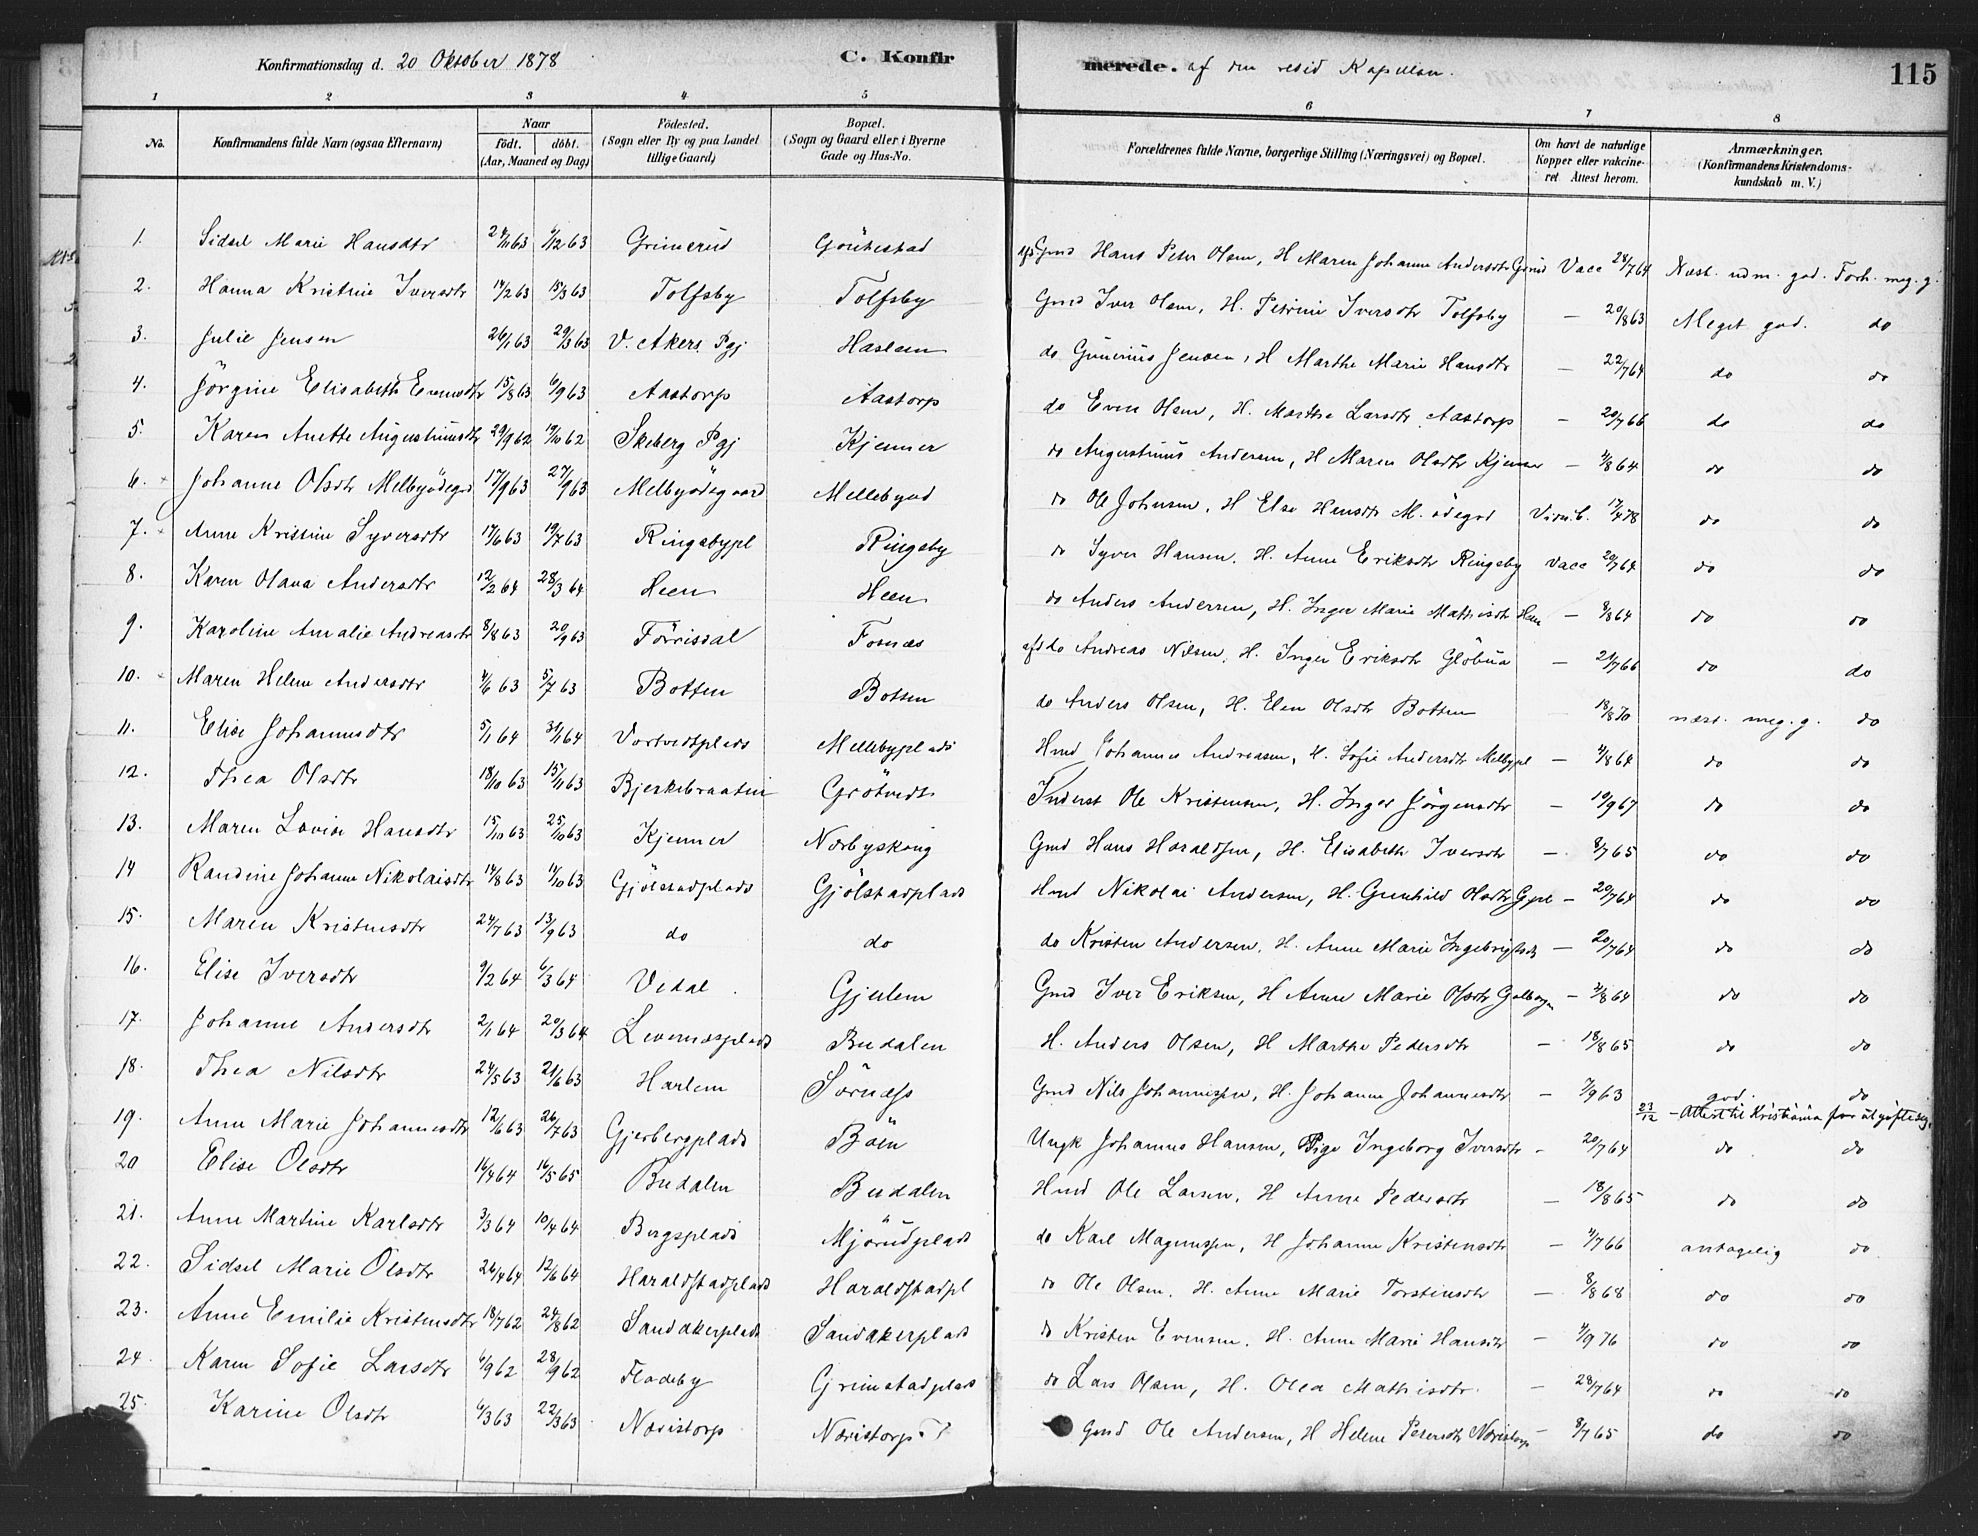 Konfirmationsdag d. 20 Oktober 1878 C. Konfirmerede. af den resid Kapellan. 115
1 2 3 4 5 6 7 8
No. Konfirmandens fulde Navn (ogsaa Efternavn) Naar født. døbt. (Aar, Maaned og Dag) Fødested. (Sogn eller By og paa Landet tillige Gaard) Bopæl. (Sogn og Gaard eller i Byerne Gade og Hus-No. Forældrenes fulde Navne, borgerlige Stilling (Næringsvei) og Bopæl. Om havt de naturlige Kopper eller vakcineret Attest herom. Anmærkninger. (Konfirmandens Kristendomskundskab m. V.)
1. Sidsel Marie Hansdtr 24/11 63 6/12 63 Grimerud Gräkestad afd. Gmd Hans Peter Olsen, H Maren Johanne Andersdtr Grud Vacc 28/7 64 Næst. udm. god. Forh. meg. g.
2. Hanna Kristine Iversdtr 14/2 63 15/3 63 Tolfsby Tolfsby Gmd Iver Olsen, H. Petrine Iversdtr Tolfsby — 20/8 63 Meget god. do
3. Julie Jensen 26/1 63 29/3 63 V. Akers Pgj Haslem do Gunerius Jensen, H Marthe Marie Hansdtr — 22/7 64 do do
4. Jörgine Elisabeth Evensdtr 15/8 63 6/9 63 Aastorp Aastorp do Even Olsen, H. Marthe Larsdtr Aastorp — 20/7 66 do do
5. Karen Anette Augustinusdtr 29/9 62 19/10 62 Skeberg Pgj Kjenner do Augustinus Andersen, H Maren Olsdtr Kjenner — 4/8 64 do do
6. Johanne Olsdtr Melbyödegrd 17/9 63 27/9 63 Melbyödegaard Mellebyöd do Ole Johnsen, H Else Hansdtr M. ödegrd Vidnb. 17/4 78 do do
7. Anne Kristine Syversdtr 17/6 63 19/7 63 Ringsbypl Ringsby do Syver Hansen. H. Anne Eriksdtr Ringsby Vacc 20/7 64 do do
8. Karen Olava Andersdtr 12/2 64 28/3 64 Heen Heen do Anders Andersen, H. Inger Marie Mathisdtr Heen — 8/8 64 do do
9. Karoline Amalie Andreasdtr 8/8 63 20/9 63 Förrisdal Fosnæs afd do Andreas Nilsen, H. Inger Eriksdtr Glöbua — 21/7 66 do do
10. Maren Helene Andersdtr 4/6 63 5/7 63 Botten Botten do Anders Olsen, H. Elen Olsdtr Botten 18/8 70 næst. meg. g. do
11. Elise Johannesdtr 5/1 64 31/1 64 Vortvedtplads Mellebyplads Hmd Johannes Andreasen, H. Sofie Andersdtr Melbypl — 4/8 64 do do
12. Thea Olsdtr 18/10 63 15/11 63 Bjerkebraaten Grötvedt Inderst Ole Kristensen, H. Inger Jörgensdtr — 10/9 67 do do
13. Maren Lovise Hansdtr 15/10 63 25/10 63 Kjenner Nærbyskoug Gmd Hans Haraldsen, H. Elisabeth Iversdtr — 8/7 65 do do
14 Randine Johanne Nikolaisdtr 14/8 63 11/10 63 Gjölstadplads Gjölstadplads Hmd Nikolai Andersen, H. Gunhild Olsdtr Gjpl — 20/7 64 do do
15. Maren Kristensdtr 24/7 63 13/9 63 do do do Kristen Andersen, H. Anne Marie Ingebrigtsdt — 20/7 64 do do
16. Elise Iversdtr 9/2 64 6/3 64 Vedal Gjulem Gmd Iver Eriksen, H Anne Marie Olsdtr — 3/8 64 do do
17. Johanne Andersdtr 2/1 64 20/3 64 Levernæsplads Budalen H. Anders Olsen, H Marthe Pedersdtr — 18/8 65 do do
18. Thea Nilsdtr 24/5 63 21/6 63 Harlem Sörnæss Gmd Nils Johannessen, H. Johanne Johannesdtr 7/9 63 god. do
23/12 — Attest til Kristiania for at giftes
19. Anne Marie Johannesdtr 12/6 63 26/7 63 Gjerbergplads Böen Ungk Johannes Hansen, Pige Ingeborg Iversdtr — 20/7 64 do do
20 Elise Olsdtr 16/4 64 16/5 65 Budalen Budalen Hmd Ole Larsen, H Anne Pedersdtr — 18/8 65 do do
21. Anne Martine Karlsdtr 3/3 64 10/4 64 Bergsplads Mjörudplads do Karl Magnussen, H Johanne Kristensdtr — 4/7 66 antagelig do
22. Sidsel Marie Olsdtr 26/4 64 12/6 64 Haraldstadplads Haraldstadpl do Ole Olsen, H. Anne Marie Torstensdtr — 8/8 68 do do
23. Anne Emilie Kristensdtr 18/7 62 24/8 62 Sandakerplads Sandakerplads do Kristen Evensen. H. Anne Marie Hansdtr — 4/9 76 do do
24. Karen Sofie Larsdtr 6/9 62 28/9 62 Fladeby Grimstadplads do Lars Olsen, H. Olea Mathisdtr — 28/7 64 do do
25. Karine Olsdtr 6/3 63 22/3 63 Næristorp Næristorp Gmd Ole Andersen, H Helene Petersdtr Næristorp — 8/7 65 do do